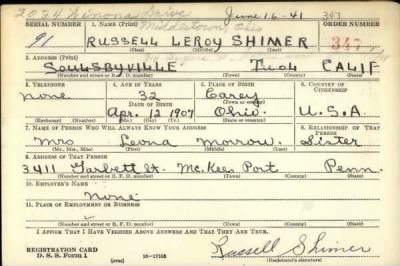 2024 Winona Drive June 16-41 347
Middletown, Ohio
SERIAL NUMBER 1. NAME (Print) ORDER NUMBER
91 RUSSELL LEROY SHIMER 347
(First) (Middle) (Last)
2. ADDRESS (Print)
SOULSBYVILLE TUOL CALIF
(Number and street or R. F. D. number) (Town) (County) (State)
3. TELEPHONE 4. AGE IN YEARS 5. PLACE OF BIRTH 6. COUNTRY OF CITIZENSHIP
none 32 Carey
DATE OF BIRTH (Town or county)
Apr. 12 1907 Ohio U.S.A.
7. NAME OF PERSON WHO WILL ALWAYS KNOW YOUR ADDRESS 8. RELATIONSHIP OF THAT PERSON
Mrs Leona Morrow Sister
(Mr., Mrs., Miss) (First) (Middle) (Last)
9. ADDRESS OF THAT PERSON
3411 Garbett St. Mc.Kees Port Penn.
(Number and street or R. F. D. number) (Town) (County) (State)
10. EMPLOYER'S NAME
None
11. PLACE OF EMPLOYMENT OR BUSINESS
(Number and street or R. F. D. number) (Town) (County) (State)
I AFFIRM THAT I HAVE VERIFIED ABOVE ANSWERS AND THAT THEY ARE TRUE.
REGISTRATION CARD
D. S. S. Form 1 16-17105 Russell Shimer
(Registrant's signature)